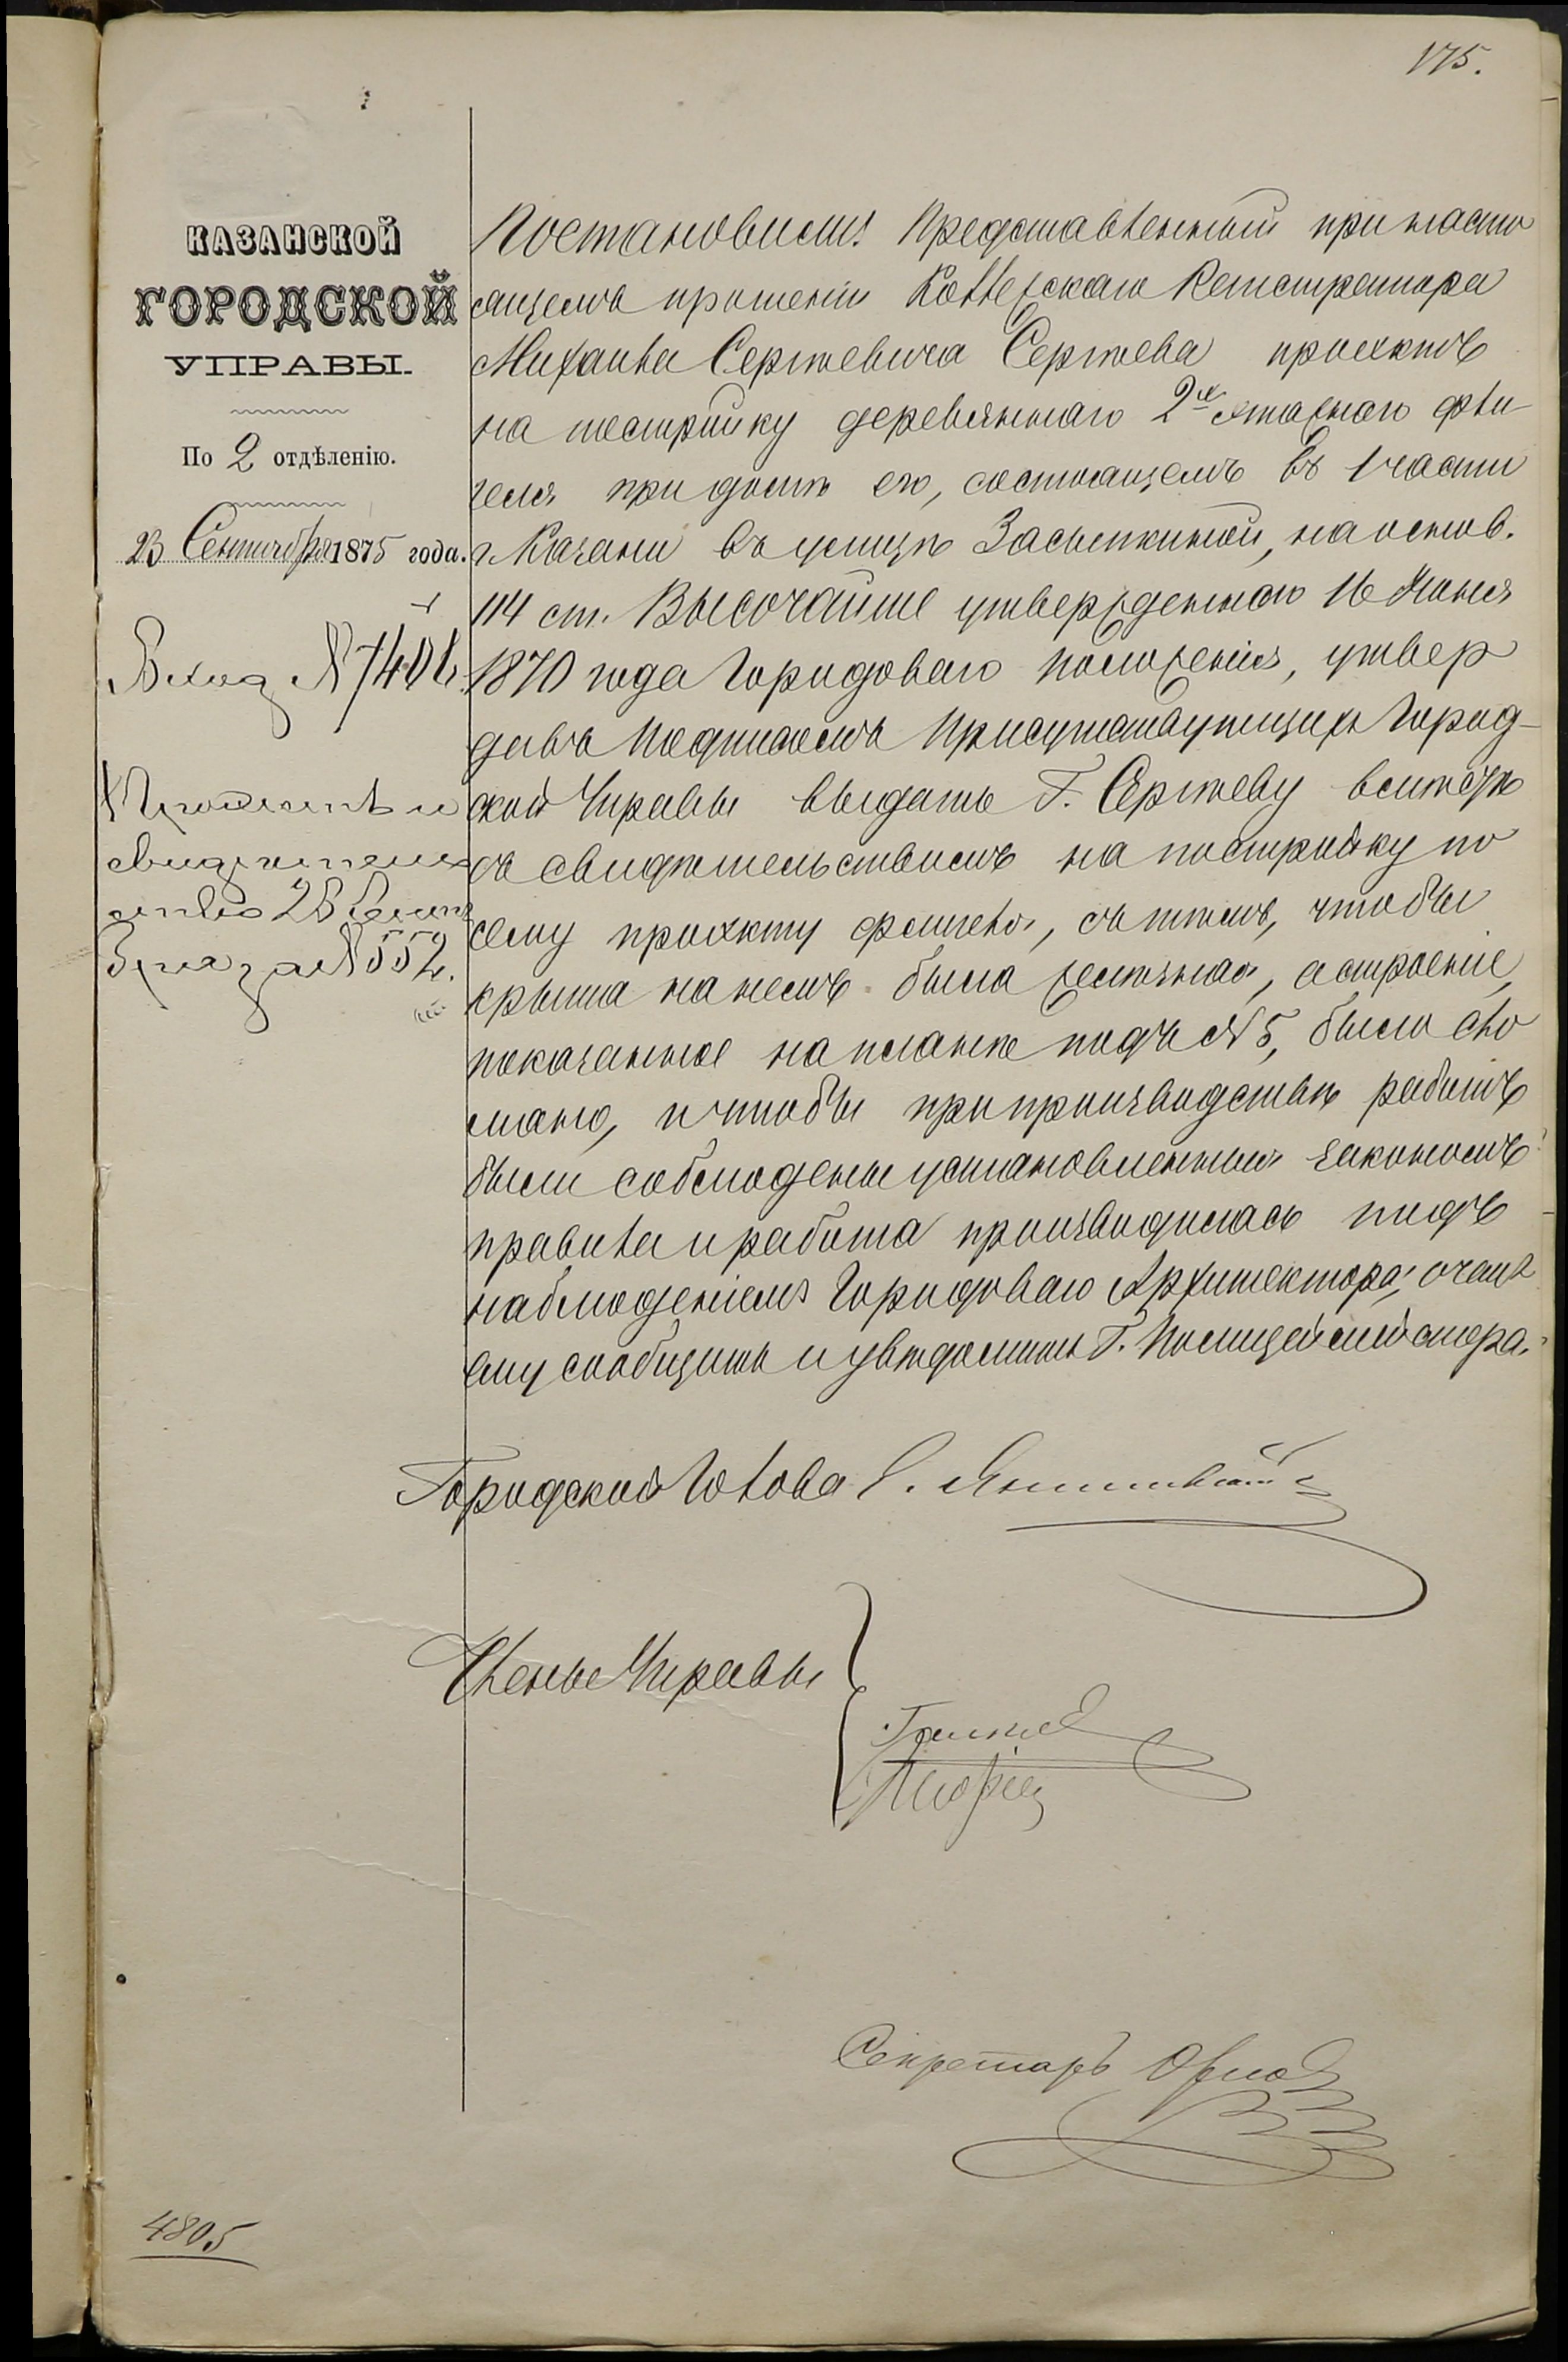 175.
КАЗАНСКОЙ
ГОРОДСКОЙ
УПРАВЫ.
По 2 отдѣленію.
23 Сентября 1875 года.
Вход №
Проэктъ и
свидѣтель
ство 23 Сент
за № 552.
Постановили: Представленный при насто
ящемъ прошеніи Коллежскаго Регистратора
Михаила Сергѣевича Сергѣева проэктъ
на постройку деревяннаго 2хъ этажнаго фли-
геля при домѣ его, состоящемъ въ 1 части
г. Казани въ улицѣ Засыпкиной, на основ.
114 ст. Высочайше утвержденнаго 16 Іюня
1870 года Городоваго положенія, утвер
дивъ подписомъ Присутствующихъ Город-
ской Управы выдать Г. Сергѣеву вмѣстѣ
съ свидѣтельствомъ на постройку по
сему проэкту флигеля, съ тѣмъ, чтобы
крыша на немъ была желѣзная, а строеніе,
показанное на планѣ подъ № 5, было сло
мано, и чтобы при производствѣ работъ
были соблюдены установленныя закономъ
правила и работа производилась подъ
наблюденіемъ Городоваго Архитектора, о чемъ
ему сообщить и увѣдомить Г. Полиціймейстера.
Городской Голова Э. Янишевскій
Члены Управы
Секретарь Орлов
4805